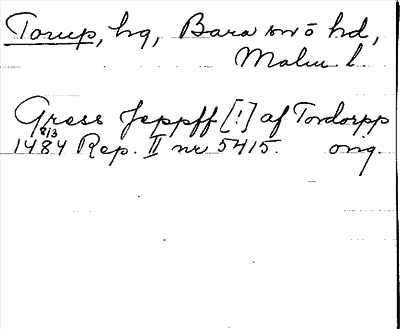 Torup, hg, Bara sn o hd,
Malm l.
Gress Jeppff [!] af Tordorpp
8/3
1484 Rep. II nr 5415. orig.